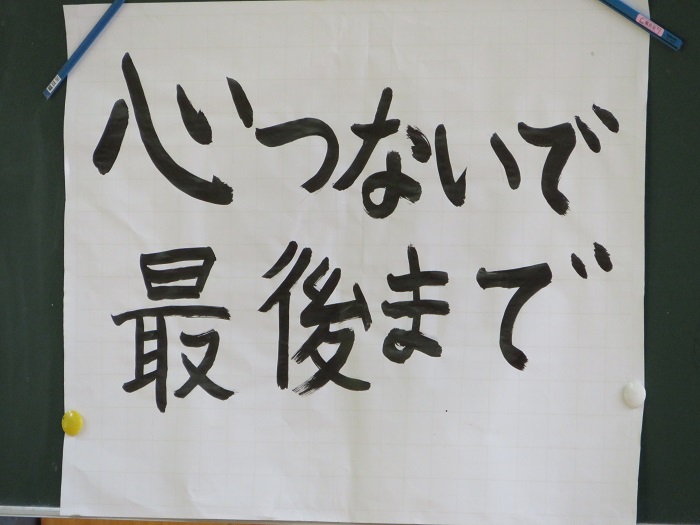 心つないで
最後まで